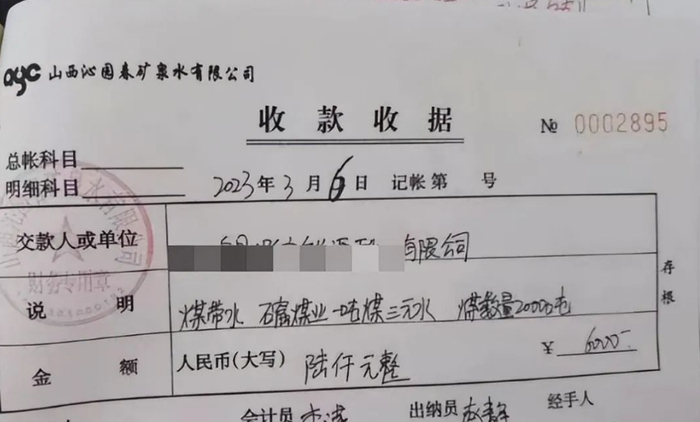 qyc 山西沁园春矿泉水有限公司
收款收据
№ 0002895
总帐科目
明细科目
2023年3月6日 记帐第 号
交款人或单位 有限公司
说明 煤带水 石富煤业一吨煤三元水 煤数量20000吨
金额 人民币(大写) 陆仟元整 ¥ 6000-
存根
财务专用章
会计员 出纳员 经手人